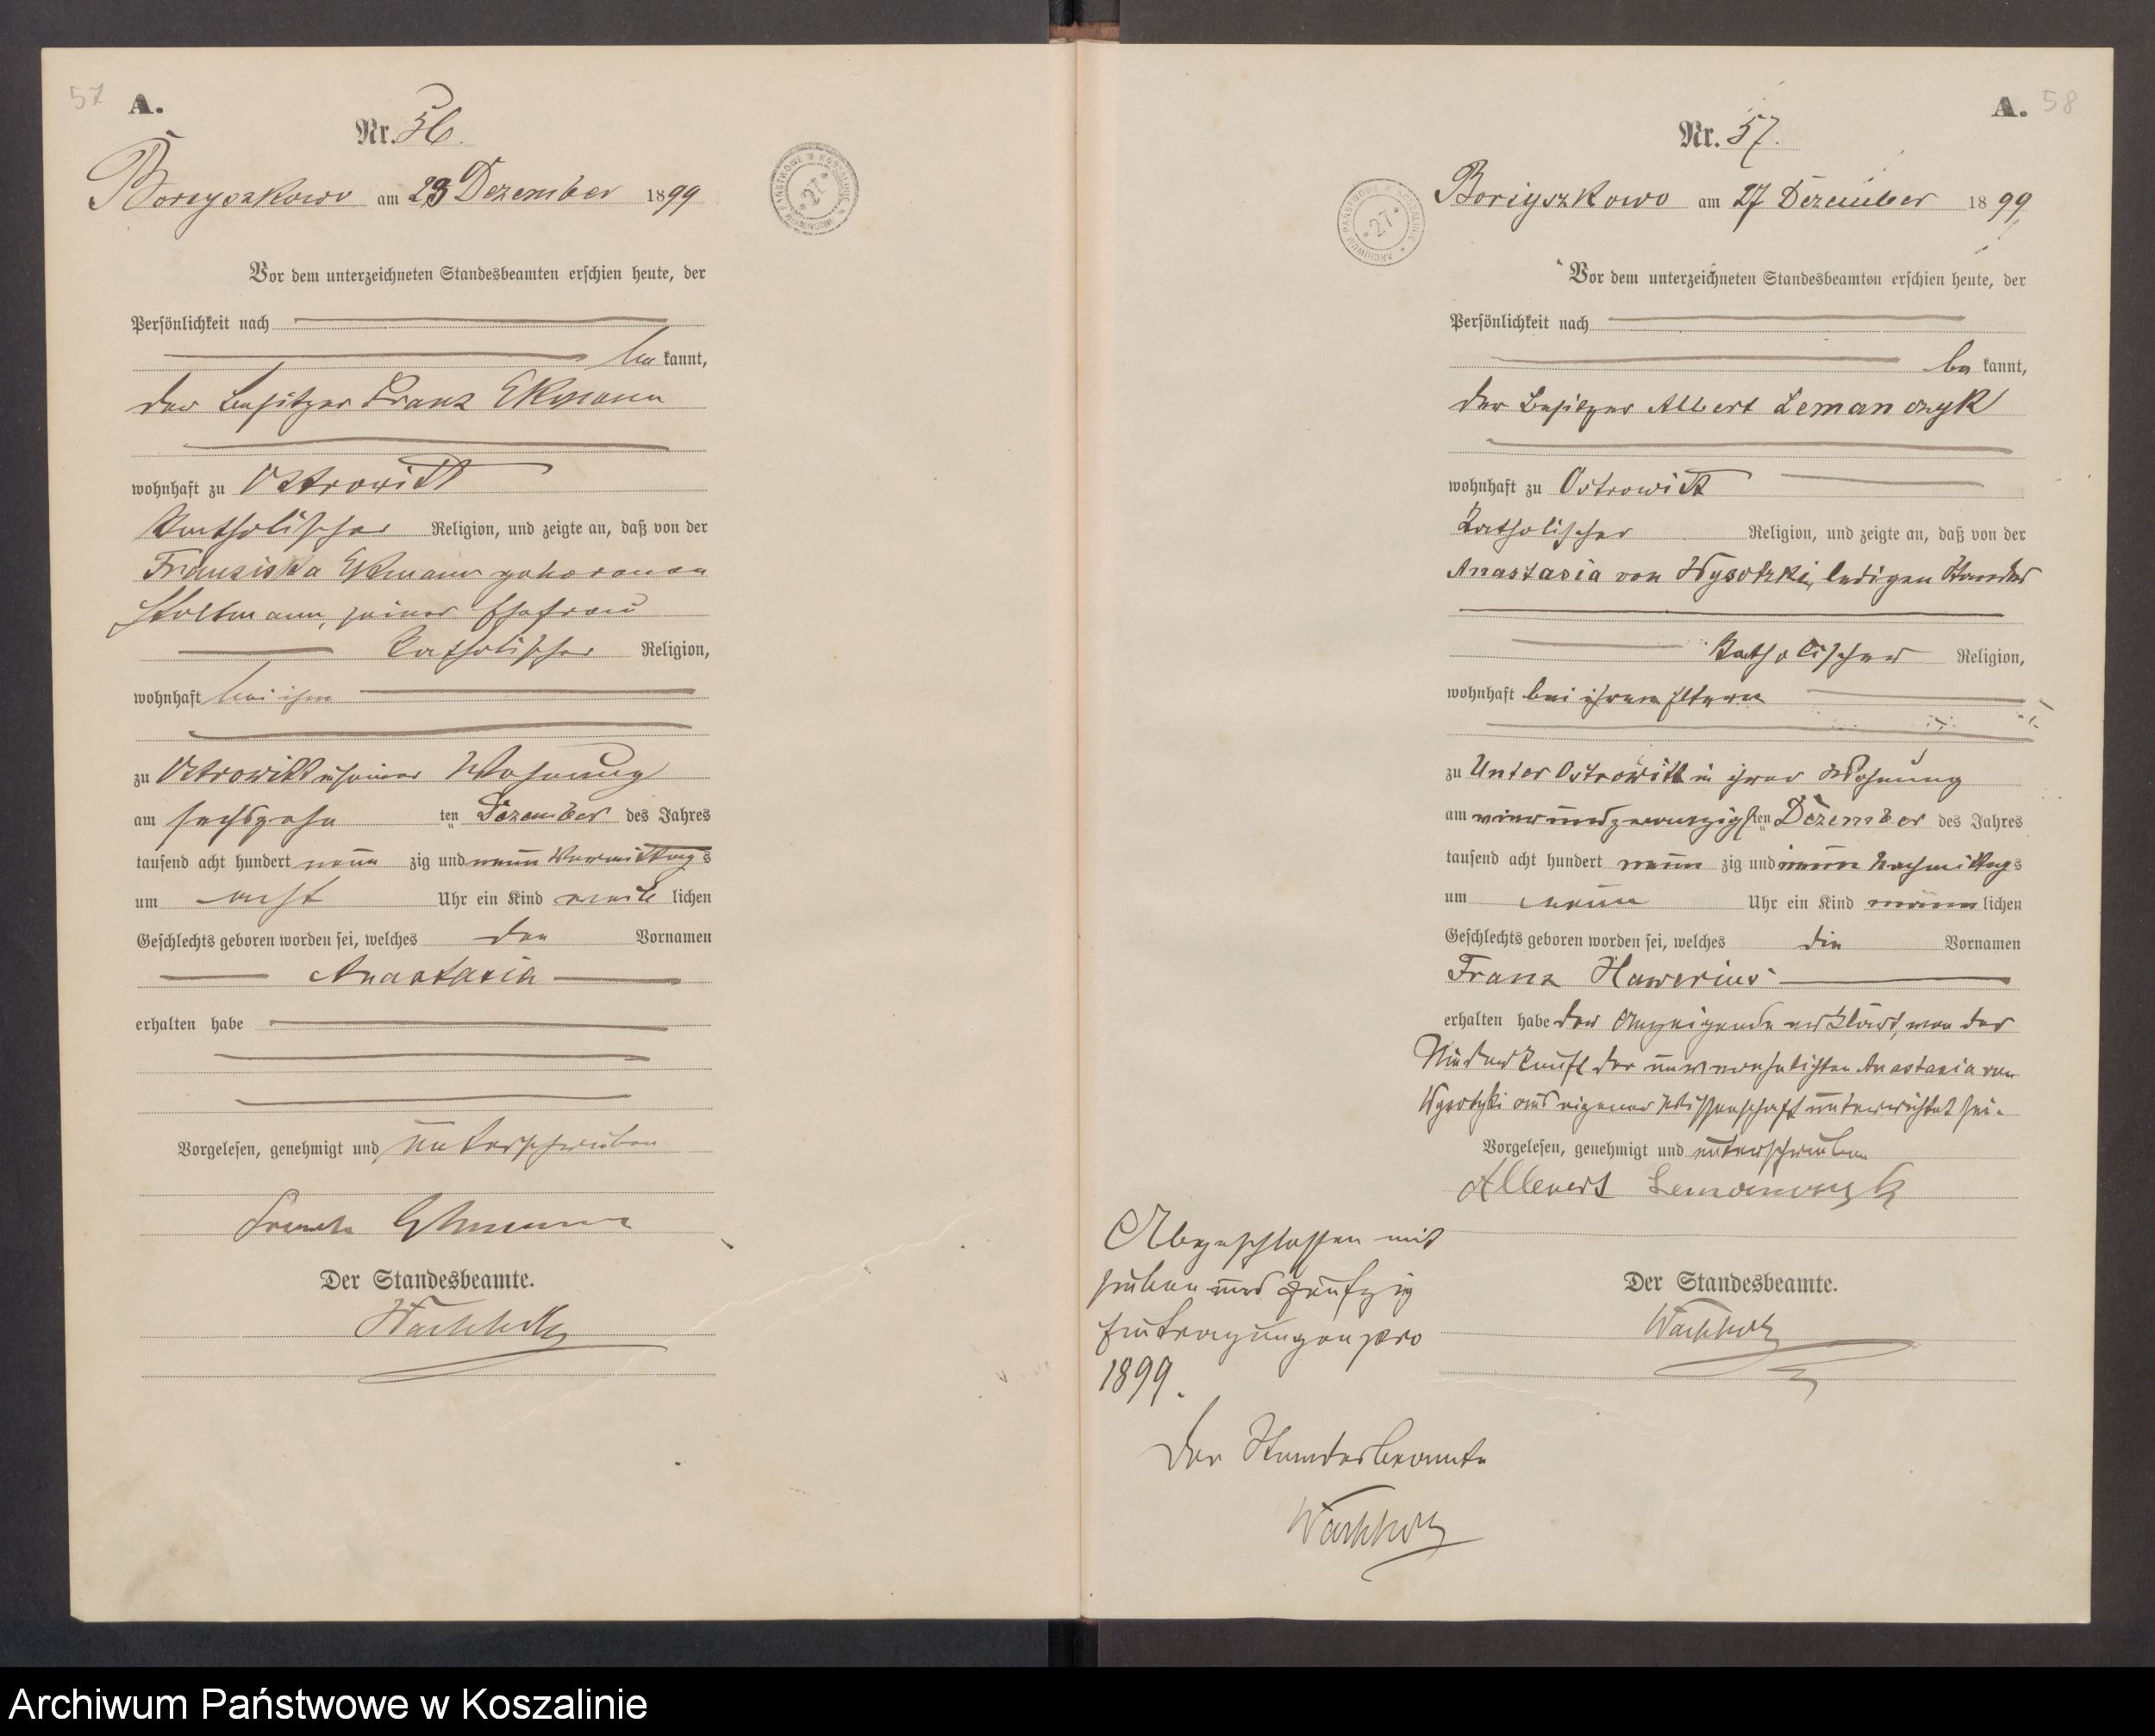 57 A.
Nr. 56.
Boryszkowo am 23 Dezember 1899
ARCHIWUM PAŃSTWOWE W KOSZALINIE * 27 *
Vor dem unterzeichneten Standesbeamten erschien heute, der
Persönlichkeit nach
be kannt,
der Besitzer Franz Ekmann
wohnhaft zu Ostrowitt
katholischer Religion, und zeigte an, daß von der
Franziska Ekmann geborenen
Stoltmann, seiner Ehefrau
katholischer Religion,
wohnhaft bei ihm
zu Ostrowitt in seiner Wohnung
am sechszehn ten Dezember des Jahres
tausend acht hundert neun zig und neun Vormittags
um acht Uhr ein Kind weib lichen
Geschlechts geboren worden sei, welches den Vornamen
Anastasia
erhalten habe
Vorgelesen, genehmigt und unterschrieben
Der Standesbeamte.
Wachholz
A. 58
Nr. 57.
Boriyszkowo am 27 Dezember 1899
ARCHIWUM PAŃSTWOWE W KOSZALINIE * 27 *
Vor dem unterzeichneten Standesbeamten erschien heute, der
Persönlichkeit nach
be kannt,
der Besitzer Albert Lemanczyk
wohnhaft zu Ostrowitt
katholischer Religion, und zeigte an, daß von der
Anastasia von Wysotzki, ledigen Standes
katholischer Religion,
wohnhaft bei ihren Eltern
zu Unter Ostrowitt in ihrer Wohnung
am vier und zwanzigsten Dezember des Jahres
tausend acht hundert neun zig und neun Nachmittags
um neun Uhr ein Kind männ lichen
Geschlechts geboren worden sei, welches die Vornamen
Franz Xawerius
erhalten habe der Anzeigende erklärt, von der
Niederkunft der unverehelichten Anastasia von
Wysotzki aus eigener Wissenschaft unterrichtet sei.
Vorgelesen, genehmigt und unterschrieben
Albert Lemanczyk
Der Standesbeamte.
Wachholz
Abgeschlossen mit
sieben und fünfzig
Eintragungen pro
1899.
Der Standesbeamte
Wachholz
Archiwum Państwowe w Koszalinie